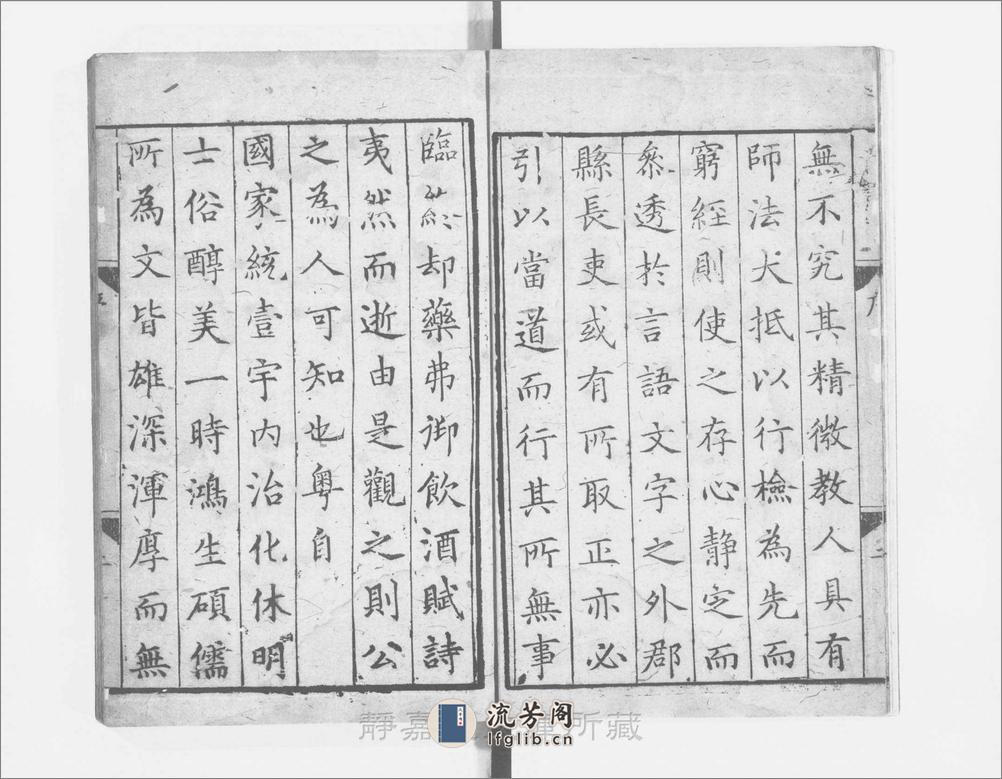 無不究其精微教人具有
師法大抵以行檢為先而
窮經則使之存心靜定而
叅透於言語文字之外郡
縣長吏或有所取正亦必
引以當道而行其所無事
臨終却藥弗御飲酒賦詩
夷然而逝由是觀之則公
之為人可知也粵自
國家統壹宇内治化休明
士俗醇美一時鴻生碩儒
所為文皆雄深渾厚而無
序
二
靜嘉
所藏
流芳阁
lfglib.cn